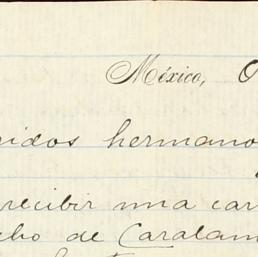 México, O
idos hermano
recibir una car
cho de Caralam